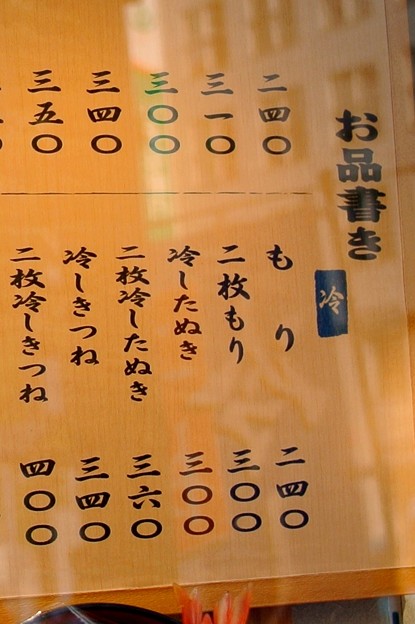 お品書き
二四〇
三一〇
三〇〇
三四〇
三五〇
冷
もり 二四〇
二枚もり 三〇〇
冷したぬき 三〇〇
二枚冷したぬき 三六〇
冷しきつね 三四〇
二枚冷しきつね 四〇〇